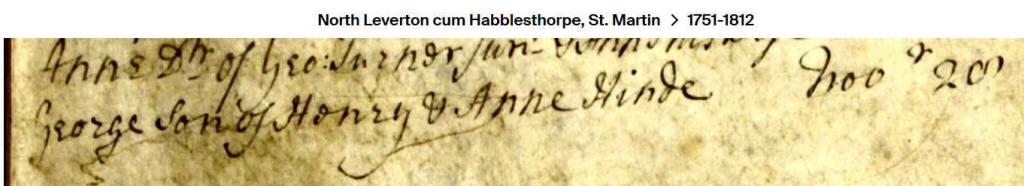 North Leverton cum Habblesthorpe, St. Martin > 1751-1812
Anne Dtr of Geo: Turner Junr & Ann his
George Son of Henry & Anne Hinde Novr 20